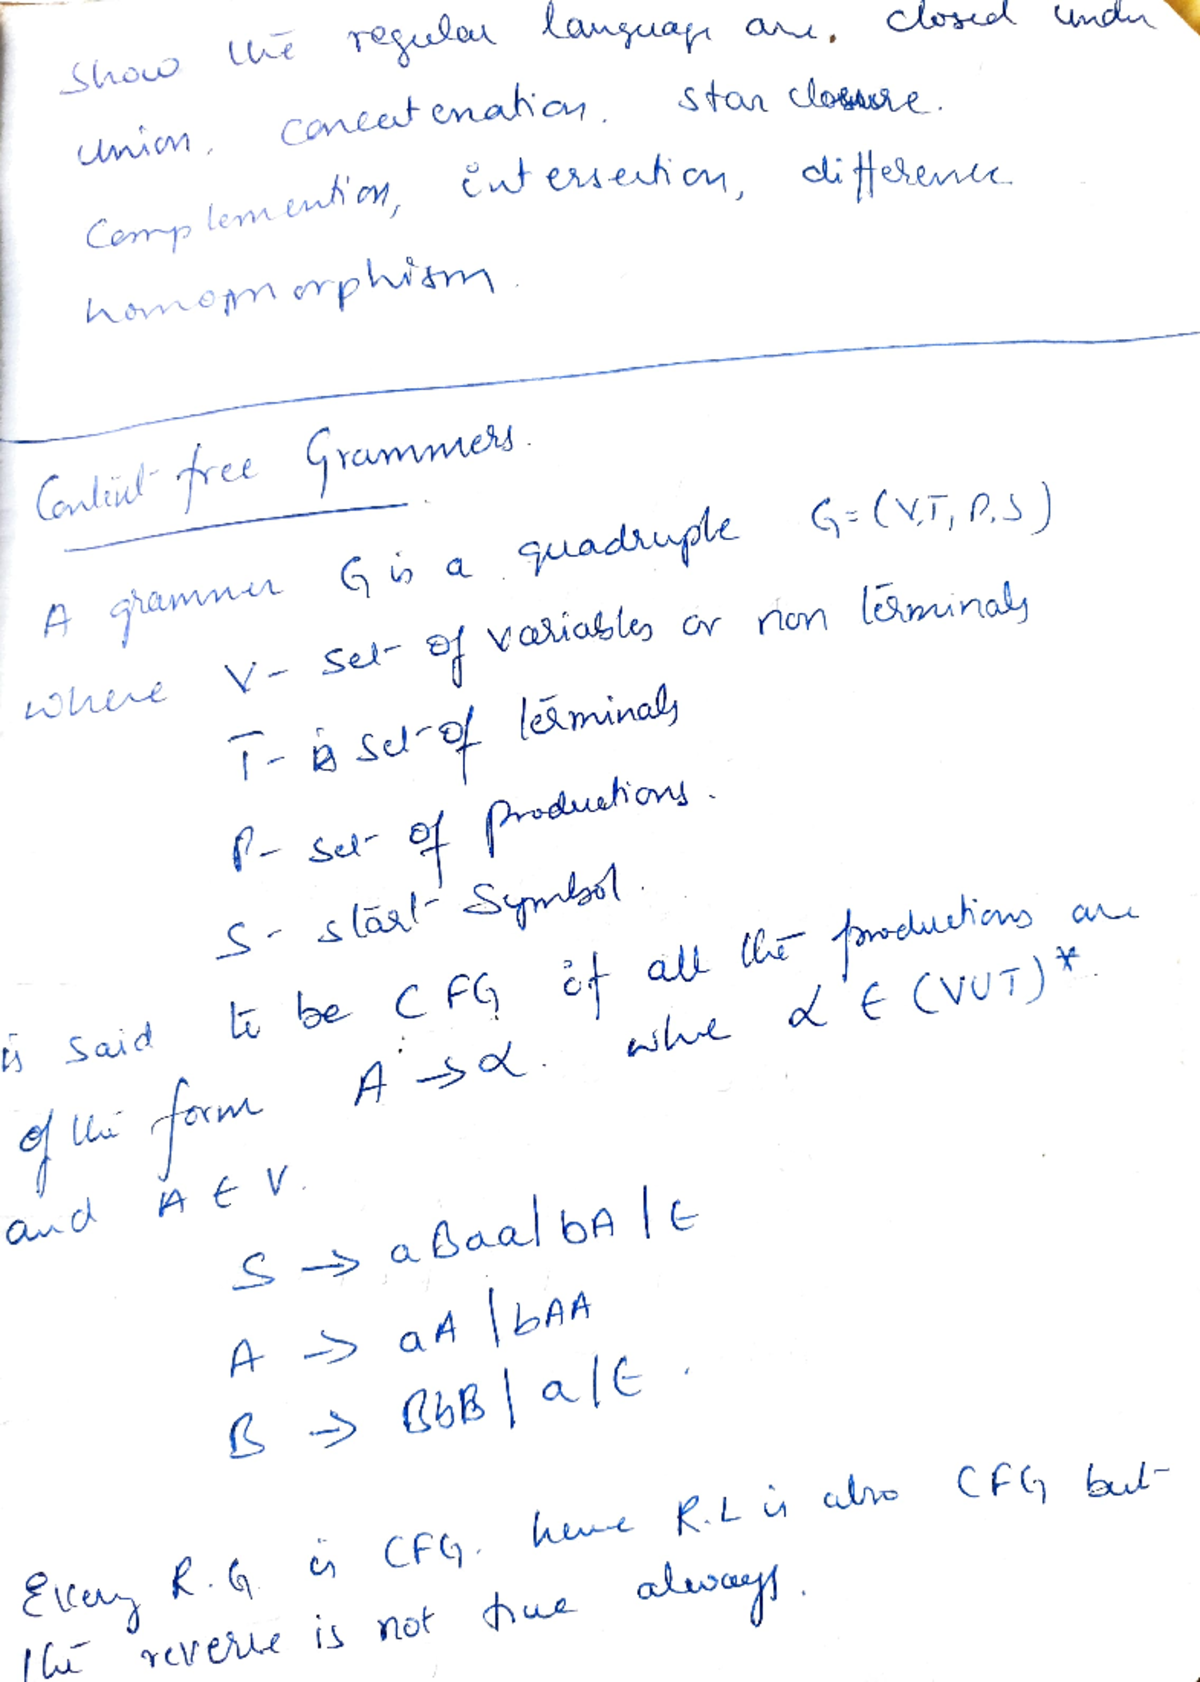 Show the regular language are. closed under
union, concatenation. star closure.
Complemention, intersection, difference
homomorphism.
Context free Grammers.
A grammer G is a quadruple G = (V, T, P, S)
where V - set of variables or non terminals
T - is set of terminals
P - set of productions.
S - start symbol.
is said to be CFG if all the productions are
of the form A → α. where α ∈ (V∪T)*.
and A ∈ V.
S → aBaa | bA | ∈
A → aA | bAA
B → BbB | a | ∈.
Every R.G. is CFG. hence R.L is also CFG but
the reverse is not true always.